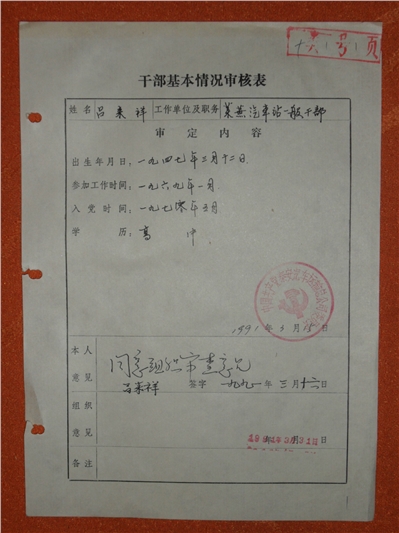 十六 1 号 1 页
干部基本情况审核表
姓名 吕来祥 工作单位及职务 莱芜汽车站一般干部
审定内容
出生年月日：一九四七年二月十二日
参加工作时间：一九六九年一月
入党时间：一九七〇年五月
学历：高中
1991年3月15日
本人意见 同意组织审查意见
吕来祥 签字 一九九一年三月十六日
组织意见
年 月 日
备注